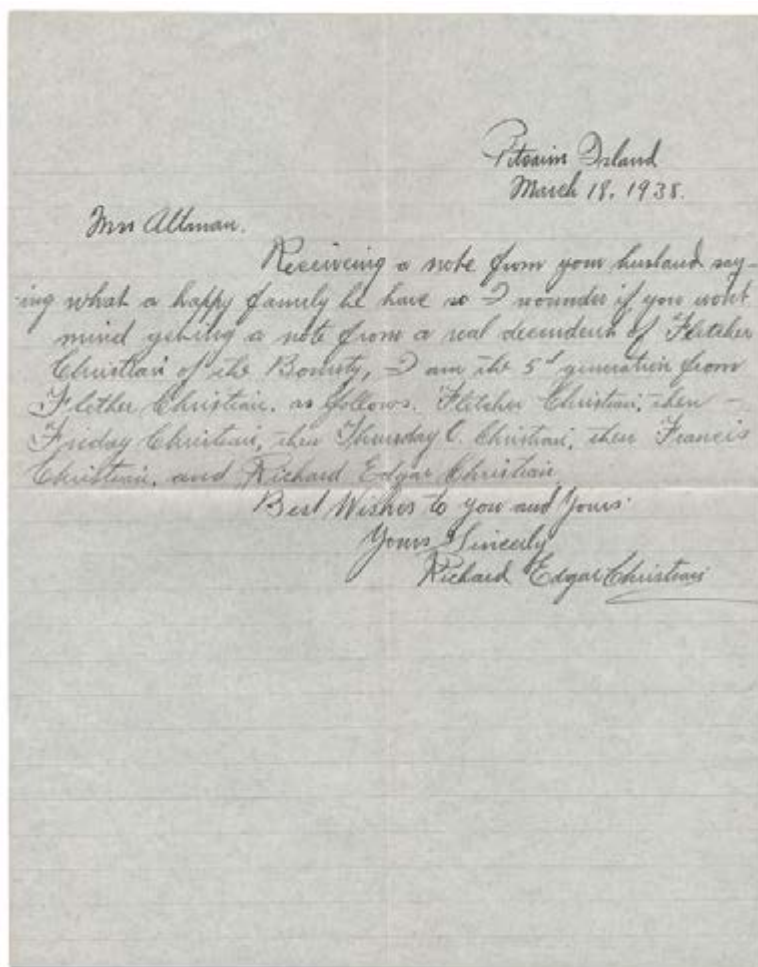 Pitcairn Island
March 18, 1938.
Mrs Altman.
Receiving a note from your husband say-
-ing what a happy family he have so I wounder if you wont
mind geting a note from a real decendent of Fletcher
Christian of the Bounty, I am the 5th generation from
Flether Christian. as follows. Fletcher Christian, then -
Friday Christian, then Thursday O. Christian, then Francis
Christian, and Richard Edgar Christian
Best Wishes to you and Yours.
Yours Sincerly
Richard Edgar Christian